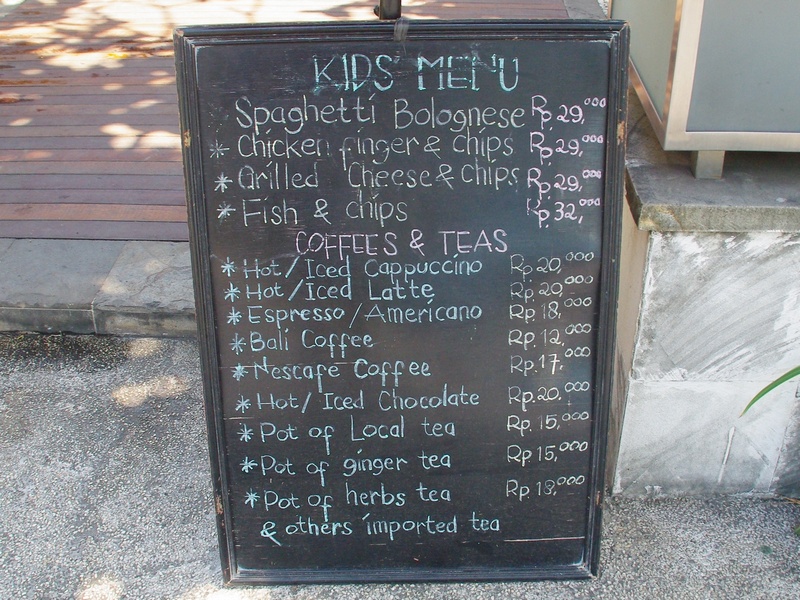 KIDS' MENU
Spaghetti Bolognese Rp 29,000
* Chicken finger & chips Rp 29,000
* Grilled Cheese & chips Rp 29,000
* Fish & chips Rp 32,000
COFFEES & TEAS
* Hot/Iced Cappuccino Rp 20,000
* Hot/Iced Latte Rp 20,000
* Espresso/Americano Rp. 18,000
* Bali Coffee Rp. 12,000
* Nescafe Coffee Rp. 17,000
* Hot/Iced Chocolate Rp. 20,000
* Pot of Local tea Rp. 15,000
* Pot of ginger tea Rp. 15,000
* Pot of herbs tea Rp. 18,000
& others imported tea